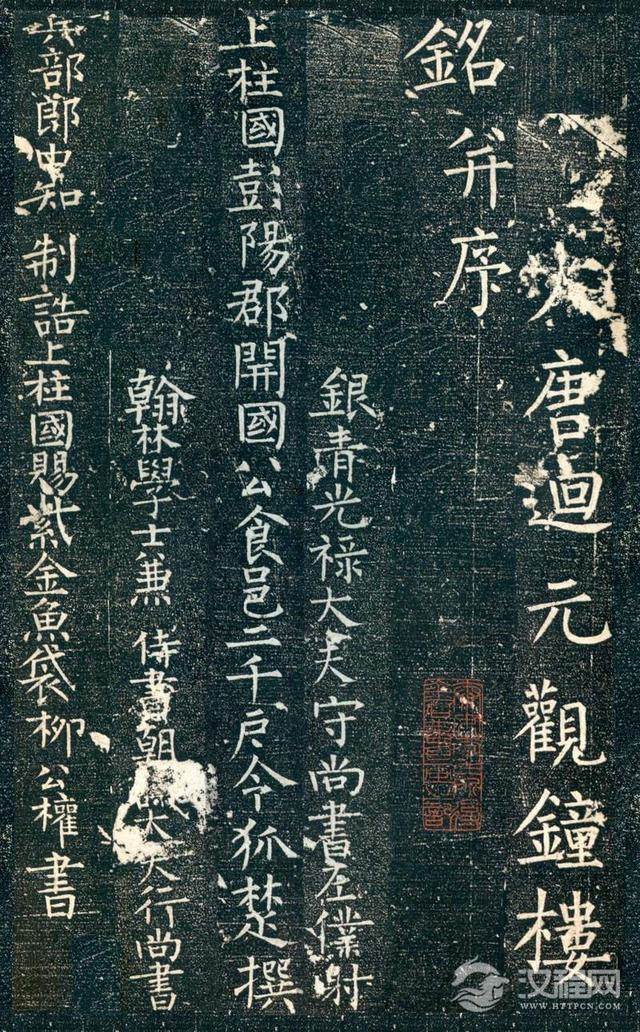 大唐迴元觀鐘樓
銘并序
銀青光祿大夫守尚書左僕射
上柱國彭陽郡開國公食邑二千戶令狐楚撰
翰林學士兼侍書朝大夫行尚書
兵部郎中知制誥上柱國賜紫金魚袋柳公權書
汉程网
WWW.HTTPCN.COM